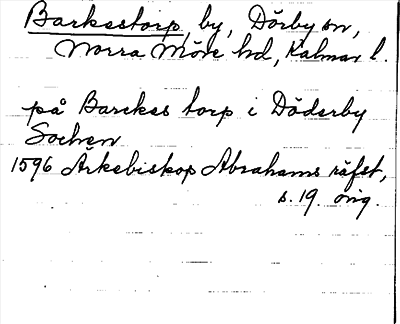 Barkestorp, by, Dörby sn,
Norra Möre hd, Kalmar l.
på Barckes torp i Döderby
Sochen
1596 Ärkebiskop Abrahams räfst,
s. 19. orig.